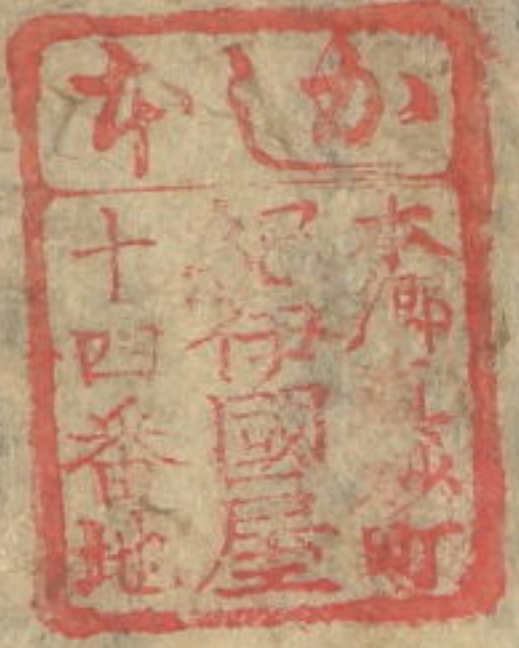 かし本
本郷真砂町
紀伊國屋
十四番地